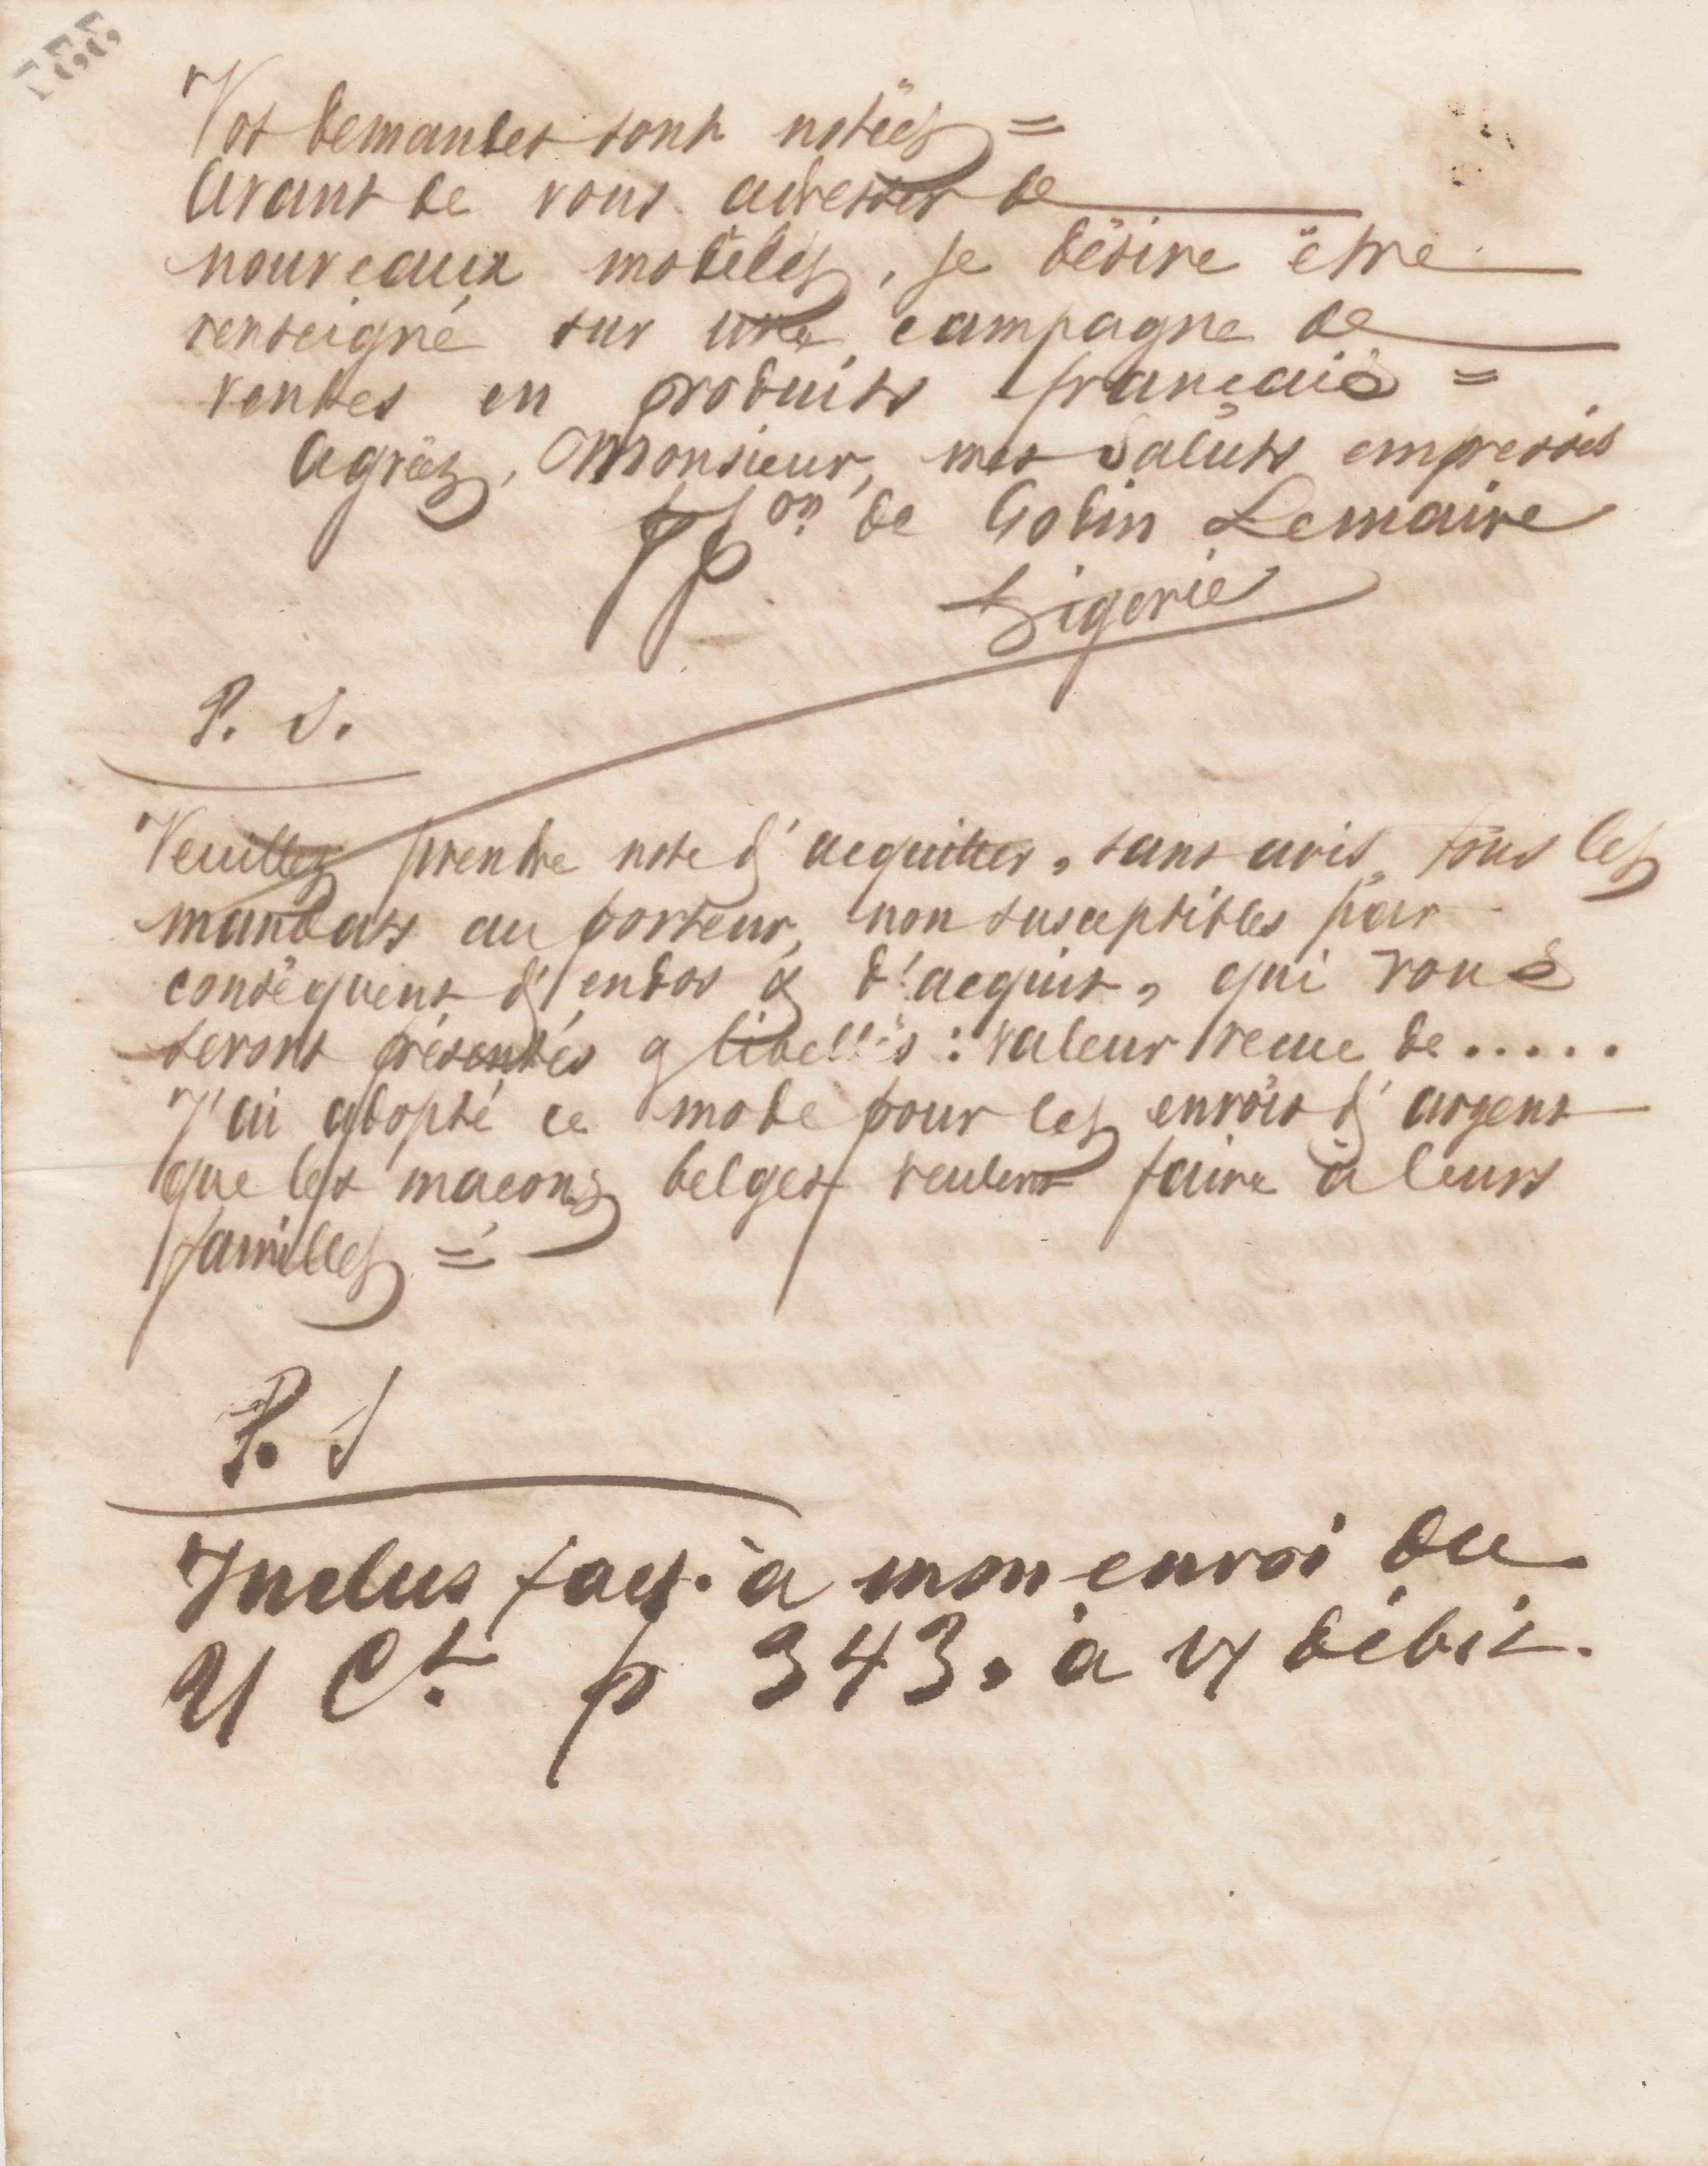 Vos demandes sont notées =
Avant de vous adresser de
nouveaux modèles, je désire être
renseigné sur une campagne de
ventes en produits français =
Agréez, Monsieur, mes Saluts empressés
pp.on de Godin Lemaire
P. S.
Veuillez prendre note d'acquitter, sans avis, tous les
mandats au porteur, non susceptibles par
conséquent d'endos & d'acquit, qui vous
seront présentés & libellés : valeur recue de .....
J'ai adopté ce mode pour les envois d'argent
que les macons belges veulent faire à leurs
familles =
P. S
Inclus fact. à mon envoi du
21 Ct. p 343. à v/ débit.